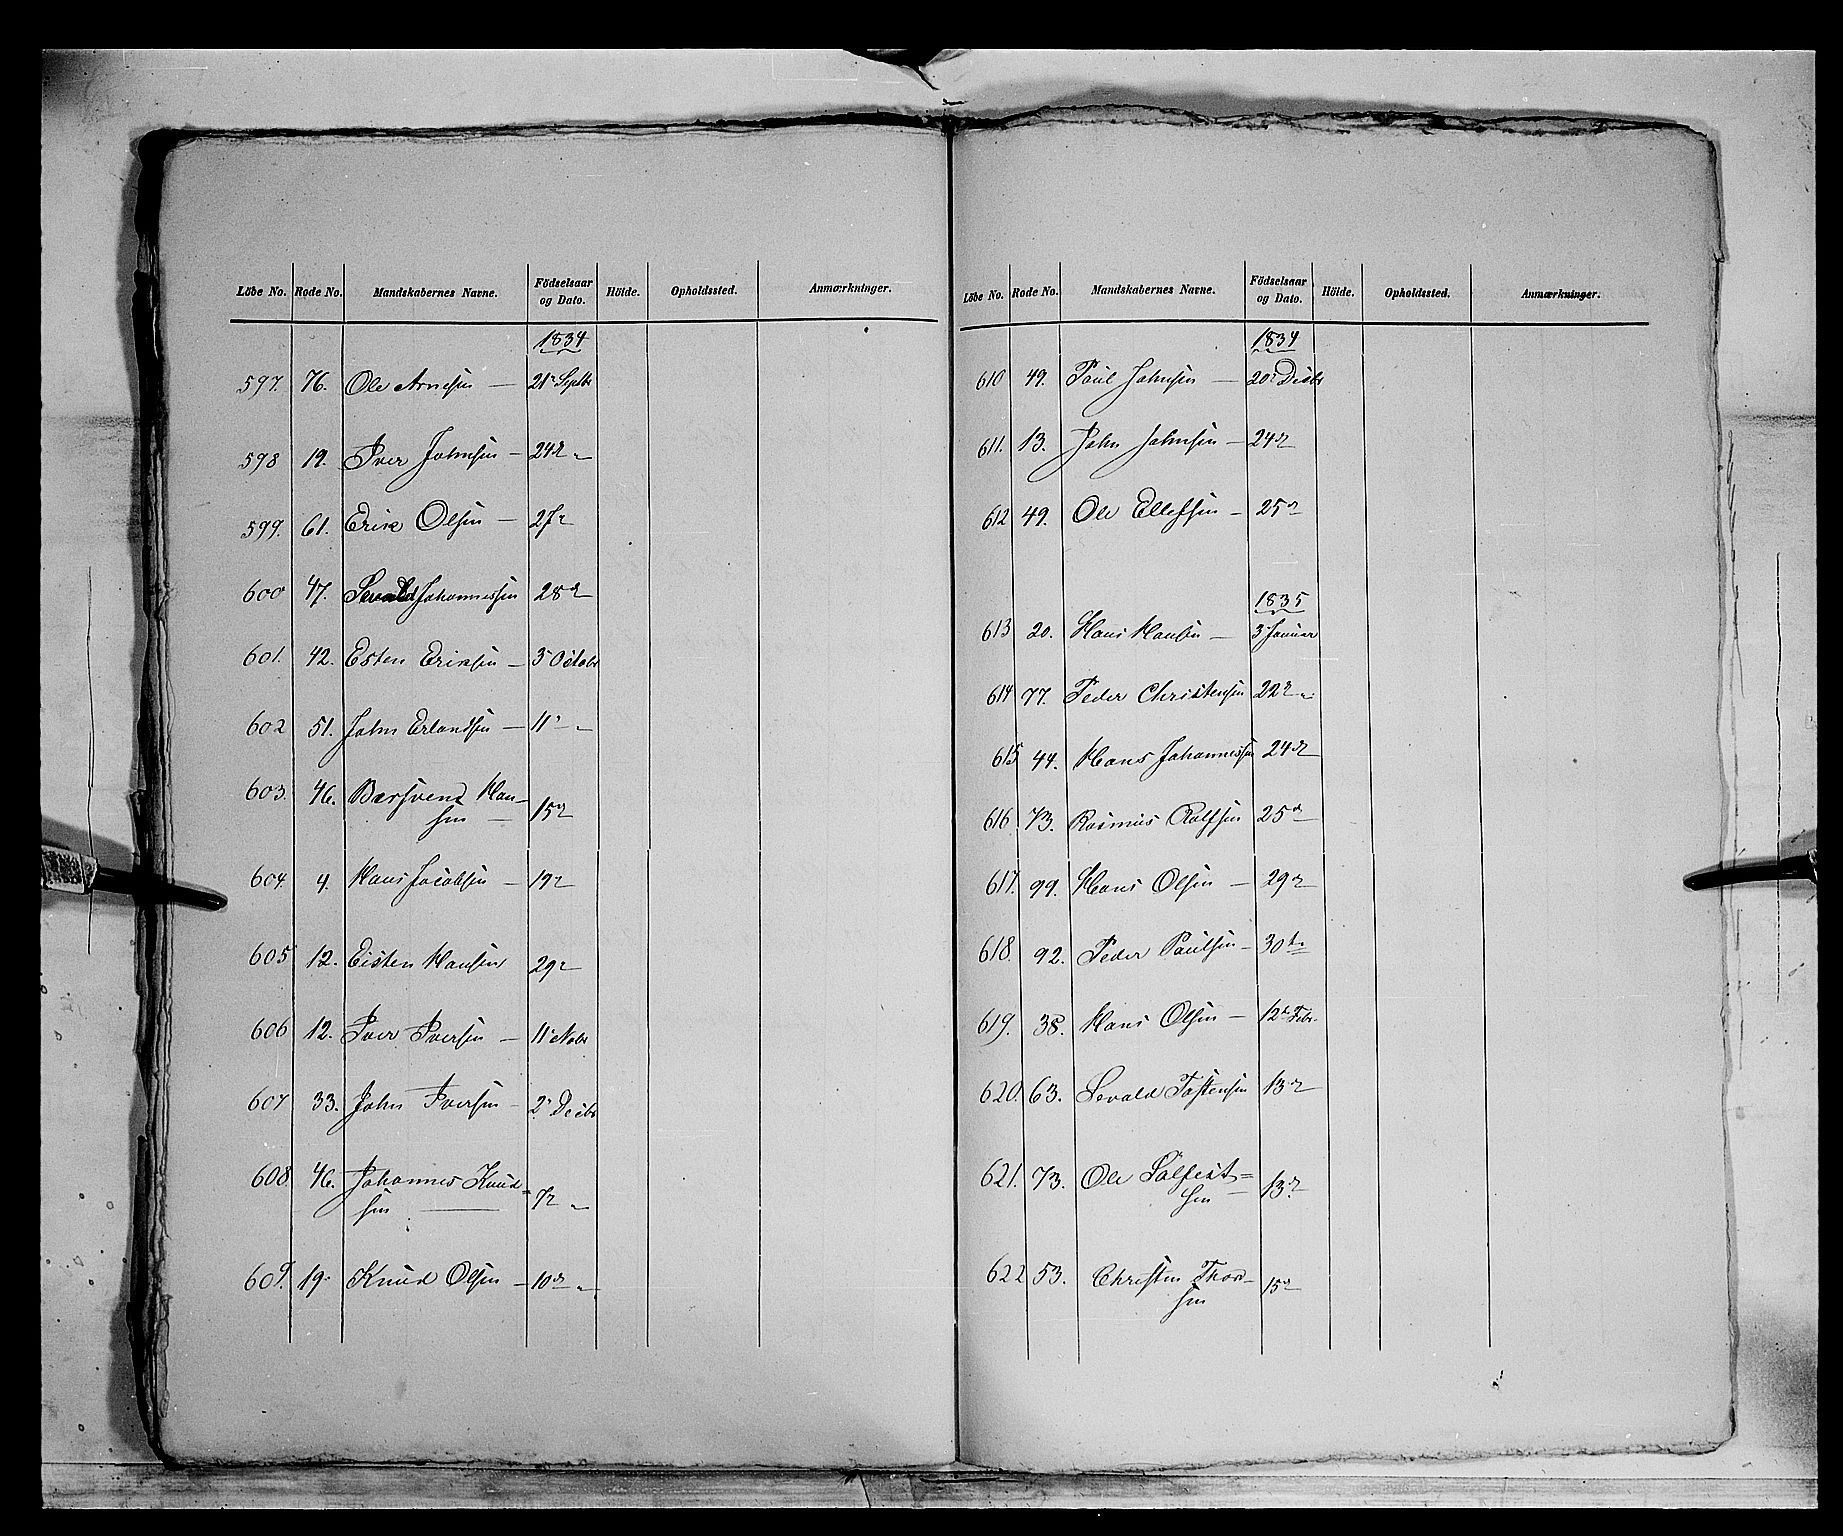 Löbe No. Rode No. Mandskabernes Navne. Födselsaar og Dato. Höide. Opholdssted. Anmærkninger.
1834
597. 76. Ole Arnesen — 21 Septbr
598 19. Iver Johnsen — 24de "
599. 61. Erik Olsen — 27
600 47. Sevald Johannessen 28de
601. 42. Esten Eriksen — 3 Octobr
602 51. John Erlandsen — 11 "
603. 46. Børsvend Han-
sen — 15de
604. 4. Hans Jacobsen — 19
605 12. Eisten Hansen 29
606 12. Iver Iversen — 11 Nobr
607 33. John Iversen — 2 Decbr
608 46. Johannes Knud=
sen — 7 "
609. 19 Knud Olsen — 10de "
Löbe No. Rode No. Mandskabernes Navne. Födselsaar og Dato. Höide. Opholdssted. Anmærkninger.
1834
610 49. Paul Johnsen — 20 Decbr
611. 13. John Johnsen — 24de
612 49. Ole Ellefsen — 25de
1835
613 20. Hans Hansen — 3 Januar
614 77. Peder Christensen 22 "
615 44. Hans Johannessen 24de
616 73. Rasmus Rolfsen 25de
617. 99. Hans Olsen — 29de
618. 92. Peder Paulsen — 30te
619. 38. Hans Olsen — 12te Febr.
620. 63. Sevald Tostensen 13de
621. 73. Ole Salfest=
sen — 13de
622 53. Christen Thor-
sen 15de